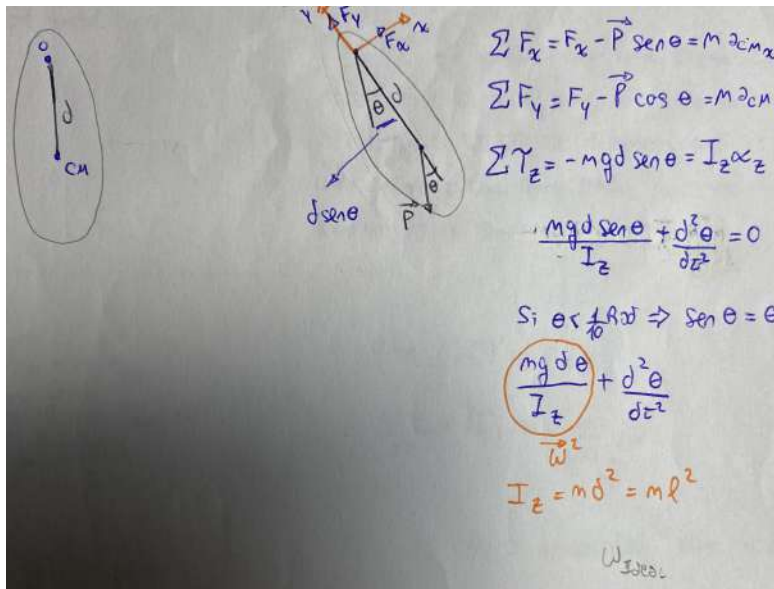 O
d
CM
y
Fy
Fx
x
θ
d
θ
d senθ
P⃗
∑ Fx = Fx - P⃗ senθ = m acmx
∑ Fy = Fy - P⃗ cos θ = m acm
∑ τz = -mgd senθ = Iz αz
mgd senθ / Iz + d²θ / dt² = 0
Si θ < 1/10 Rad ⇒ sen θ = θ
mg d θ / Iz + d²θ / dt²
w⃗²
Iz = md² = ml²
WIdeal